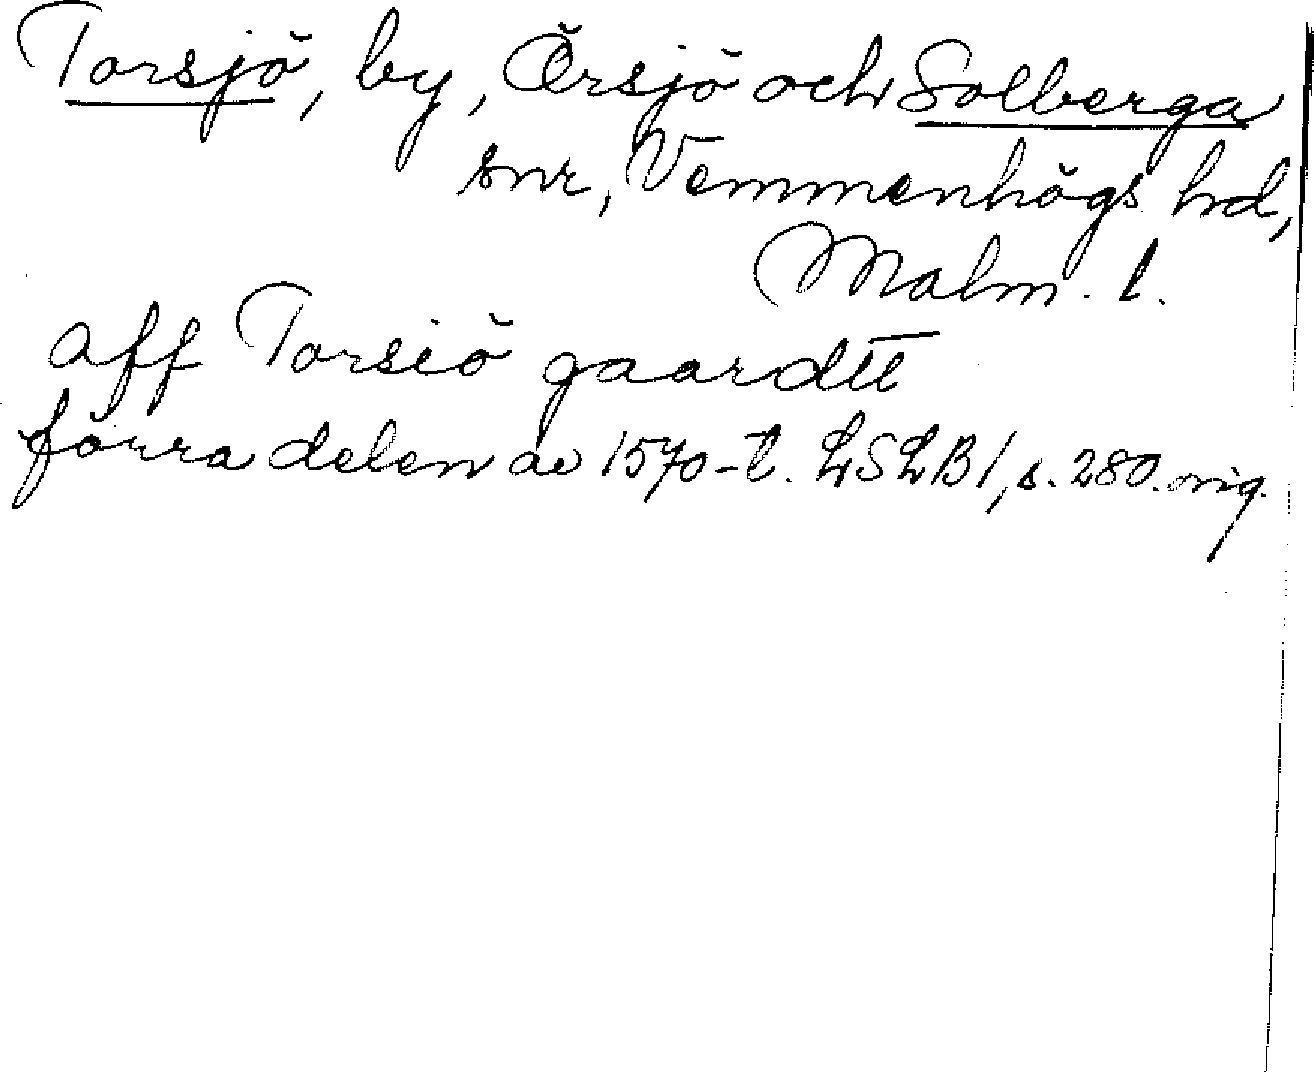 Torsjö, by, Örsjö och Solberga
snr, Vemmenhögs hd,
Malm. l.
aff Torsiö gaardtt
förra delen av 1570-t. LSLB 1, s. 280. orig.